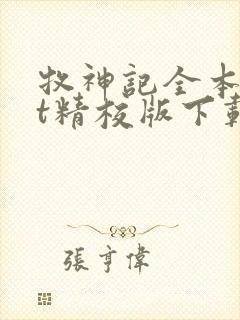 牧神記全本
t精校版下載
張亨偉